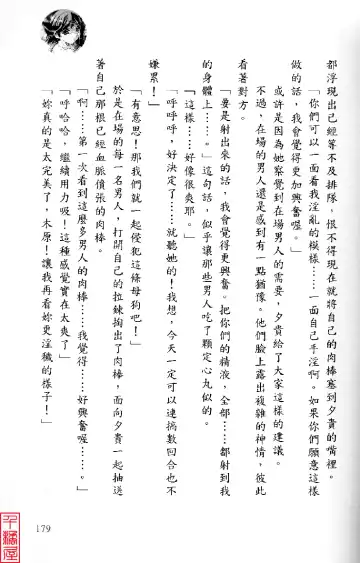 都浮現出已經等不及排隊，恨不得現在就將自己的肉棒塞到夕貴的嘴裡。
「你們可以一面看我淫亂的模樣……一面自己手淫啊。如果你們願意這樣
做的話，我會覺得更加興奮喔。」
或許是因為她察覺到在場男人的需要，夕貴給了大家這樣的建議。
不過，在場的男人還是感到有一點猶豫。他們臉上露出複雜的神情，彼此
看著對方。
「要是射出來的話，我會覺得更興奮。把你們的精液，全部……都射到我
的身體上……。」這句話，似乎讓那些男人吃了顆定心丸似的。
『這樣……好像很爽耶。』
「呼呼呼，好決定了……就聽她的！我想，今天一定可以連搞數回合也不
嫌累！」
「有意思！那我們就一起侵犯這條母狗吧！」
於是在場的每一名男人，打開自己的拉鍊掏出了肉棒，面向夕貴一起抽送
著自己那根已經血脈僨張的肉棒。
「啊……第一次看到這麼多男人的肉棒……我覺得……好興奮喔……。」
「呼哈哈，繼續用力吸！這種感覺實在太爽了！」
「妳真的是太完美了，木原！讓我再看妳更淫穢的樣子！」
179